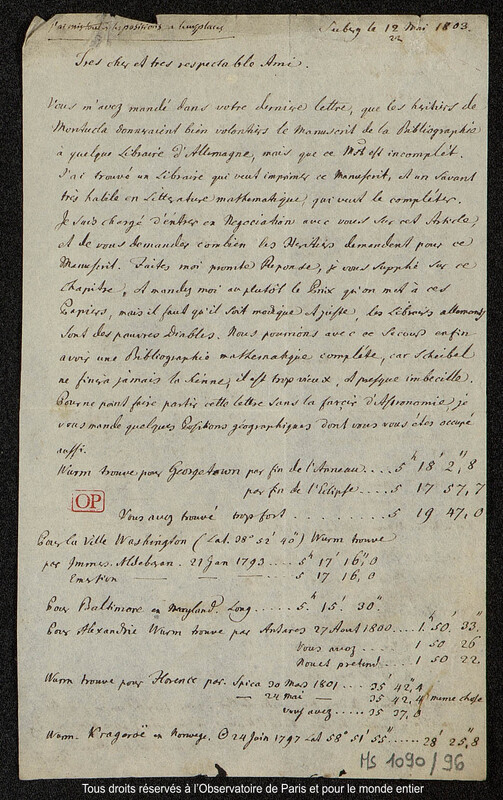 J'ai mis tout à les positions à leurs places
Seeberg le 12 Mai 1803.
22
Tres cher et tres respectable Ami.
Vous m'avez mandé dans votre derniere lettre, que les heritiers de
Montucla donneraient bien volontiers le Manuscrit de la Bibliographie
à quelque Libraire d'Allemagne, mais que ce Mst est incomplet.
J'ai trouvé un Libraire qui veut imprimer ce Manuscrit, et un Savant
très habile en Litterature mathematique, qui veut le completer.
Je suis chargé d'entrer en Negociation avec vous sur cet Article,
et de vous demander combien les Heritiers demandent pour ce
Manuscrit. Faites moi promte Reponse, je vous supplie sur ce
Chapitre, et mandez moi au plutôt le Prix qu'on met à ces
Papiers, mais il faut qu'il soit modique et juste, les Libraires allemans
sont des pauvres Diables. Nous pourrions avec ce secours enfin
avoir une Bibliographie mathematique complète, car Scheibel
ne finira jamais la sienne, il est trop vieux, et presque imbecille.
Pour ne point faire partir cette lettre sans la farcir d'Astronomie, je
vous mande quelques Positions geographiques dont vous vous etes occupé
aussi.
Wurm trouve pour Georgetown par fin de l'Anneau.... 5h 18' 2",8
par fin de l'Eclipse.... 5 17 57,7
OP
Vous avez trouvé trop fort.......... 5 19 47,0
Pour la Ville Washington (Lat. 38° 52' 40") Wurm trouve
par Immers. Aldebaran. 21 Jan 1793.... 5h 17' 16",0
Emersion — — — 5 17 16,0
Pour Baltimore en Maryland. Long..... 5h 15' 30"
Pour Alexandrie Wurm trouve par Antares 27 Aout 1800.... 1h 50' 33"
Vous avez.... 1 50 26
Nouet pretend.... 1 50 22.
Wurm trouve pour Florence par Spica 30 Mars 1801.... 35' 42",4
— 24 mai 35 42,4 même chose
vous avez.... 35 37,0
Wurm. Krageroë en Norwege. ☉ 24 Juin 1797 Lat 58° 51' 55"..... 28' 25",8
Ms 1090/96
Tous droits réservés à l'Observatoire de Paris et pour le monde entier